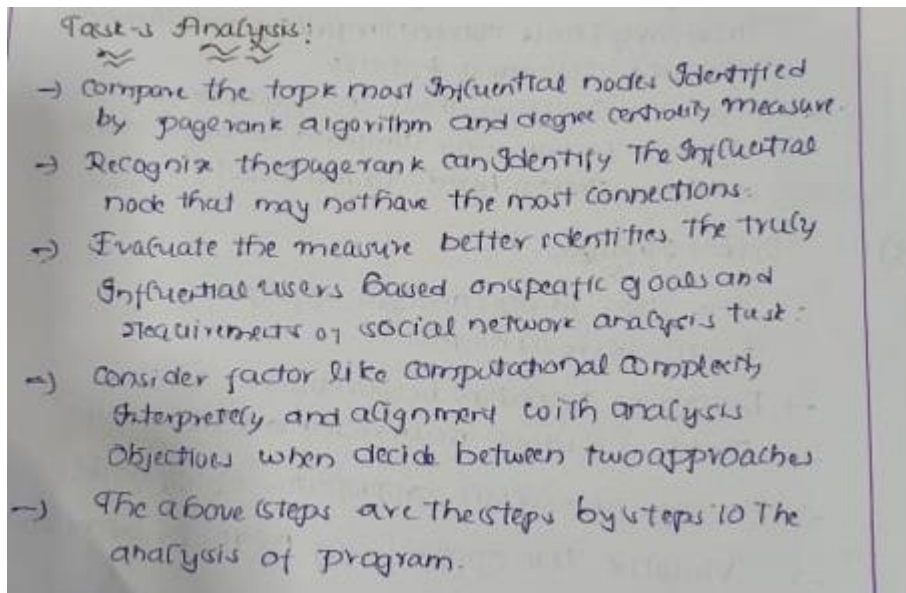 Task-3 Analysis:
→ compare the top k most Influential nodes Identified
by pagerank algorithm and degree centrality measure.
→ Recognix the pagerank can Identify The Influential
node that may not have the most connections.
→ Evaluate the measure better identifies the truly
Influential users Based on speatic goals and
requirements of social network analysis task:
→ Consider factor like computational complexity
Interpretely and alignment with analysis
Objectives when decide between two approaches
→ The above steps are the steps by steps to The
analysis of program.